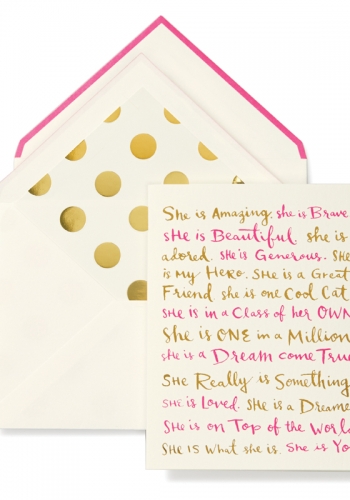 She is Amazing. she is Brave
she is Beautiful. she is
adored. she is Generous. She
is my Hero. She is a Great
Friend. she is one Cool Cat
She is in a Class of her OWN
She is ONE in a Million
she is a Dream come True
She Really is Something
She is Loved. She is a Dreame
She is on Top of the World
She IS What she is. She is Yo